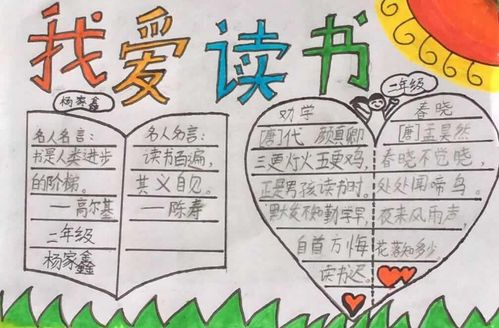 我爱读书
杨家鑫
二年级
名人名言:
书是人类进步
的阶梯。
——高尔基
二年级
杨家鑫
名人名言:
读书百遍,
其义自见。
——陈寿
劝学
[唐]代 颜真卿
三更灯火五更鸡,
正是男孩读书时。
默发不知勤学早,
白首方悔
读书迟。
春晓
[唐]孟昊然
春晓不觉晓,
处处闻啼鸟。
夜来风雨声,
花落知多少